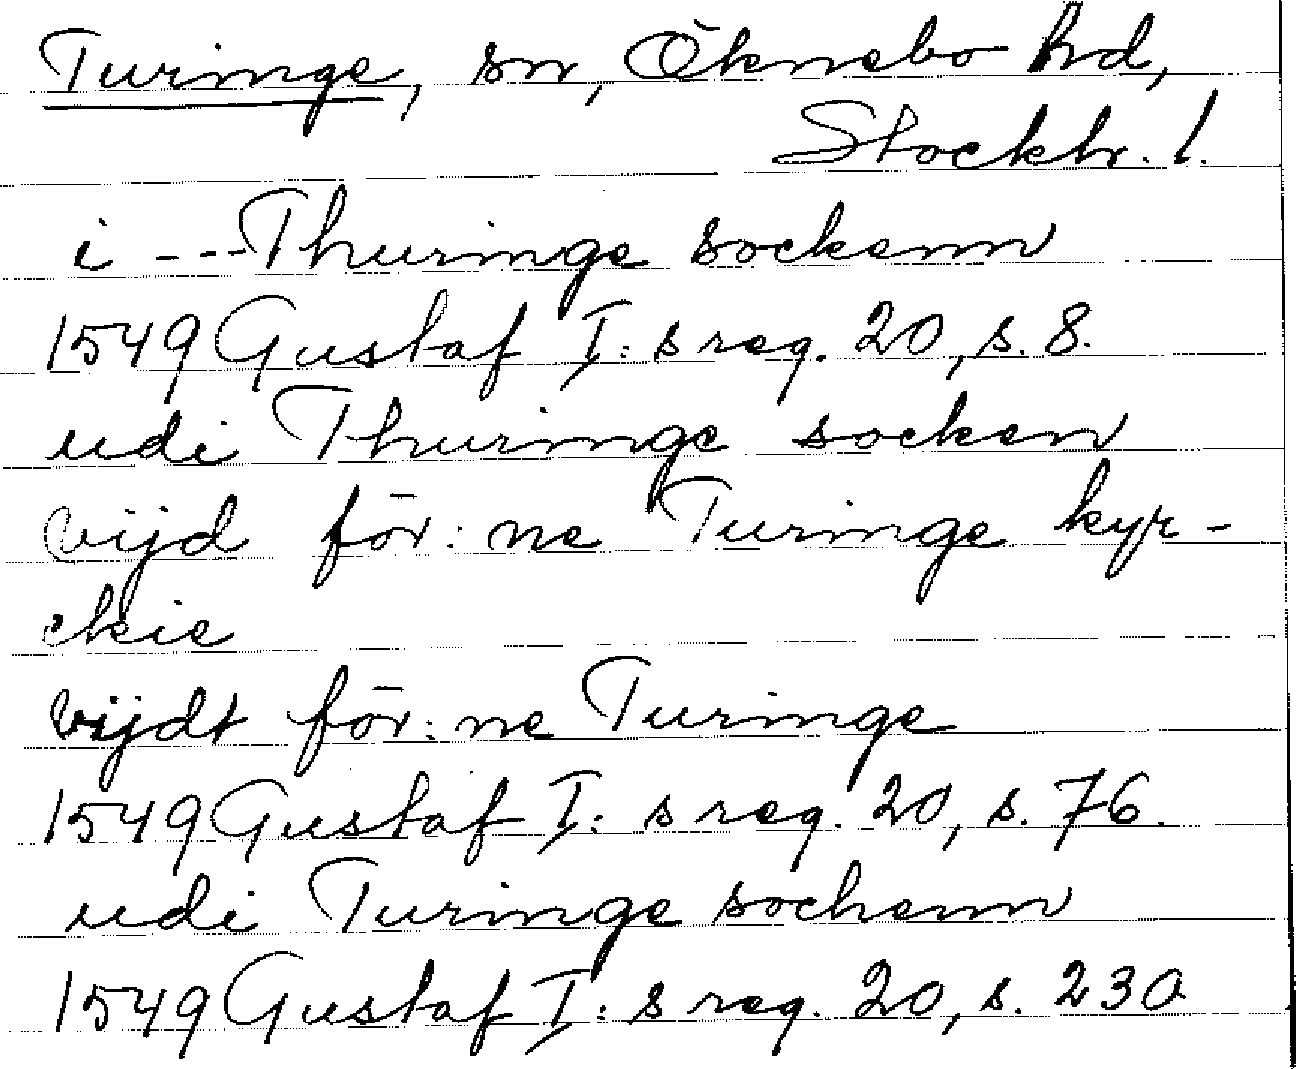 Turinge, sn, Öknebo hd,
Stockh. l.
i --- Thuringe sockenn
1549 Gustaf I: s reg. 20, s. 8.
udi Thuringe socken
vijd för: ne Turinge kyr-
ckie
vijdt för: ne Turinge
1549 Gustaf I: s reg. 20, s. 76.
udi Turinge sochenn
1549 Gustaf I: s reg. 20, s. 230